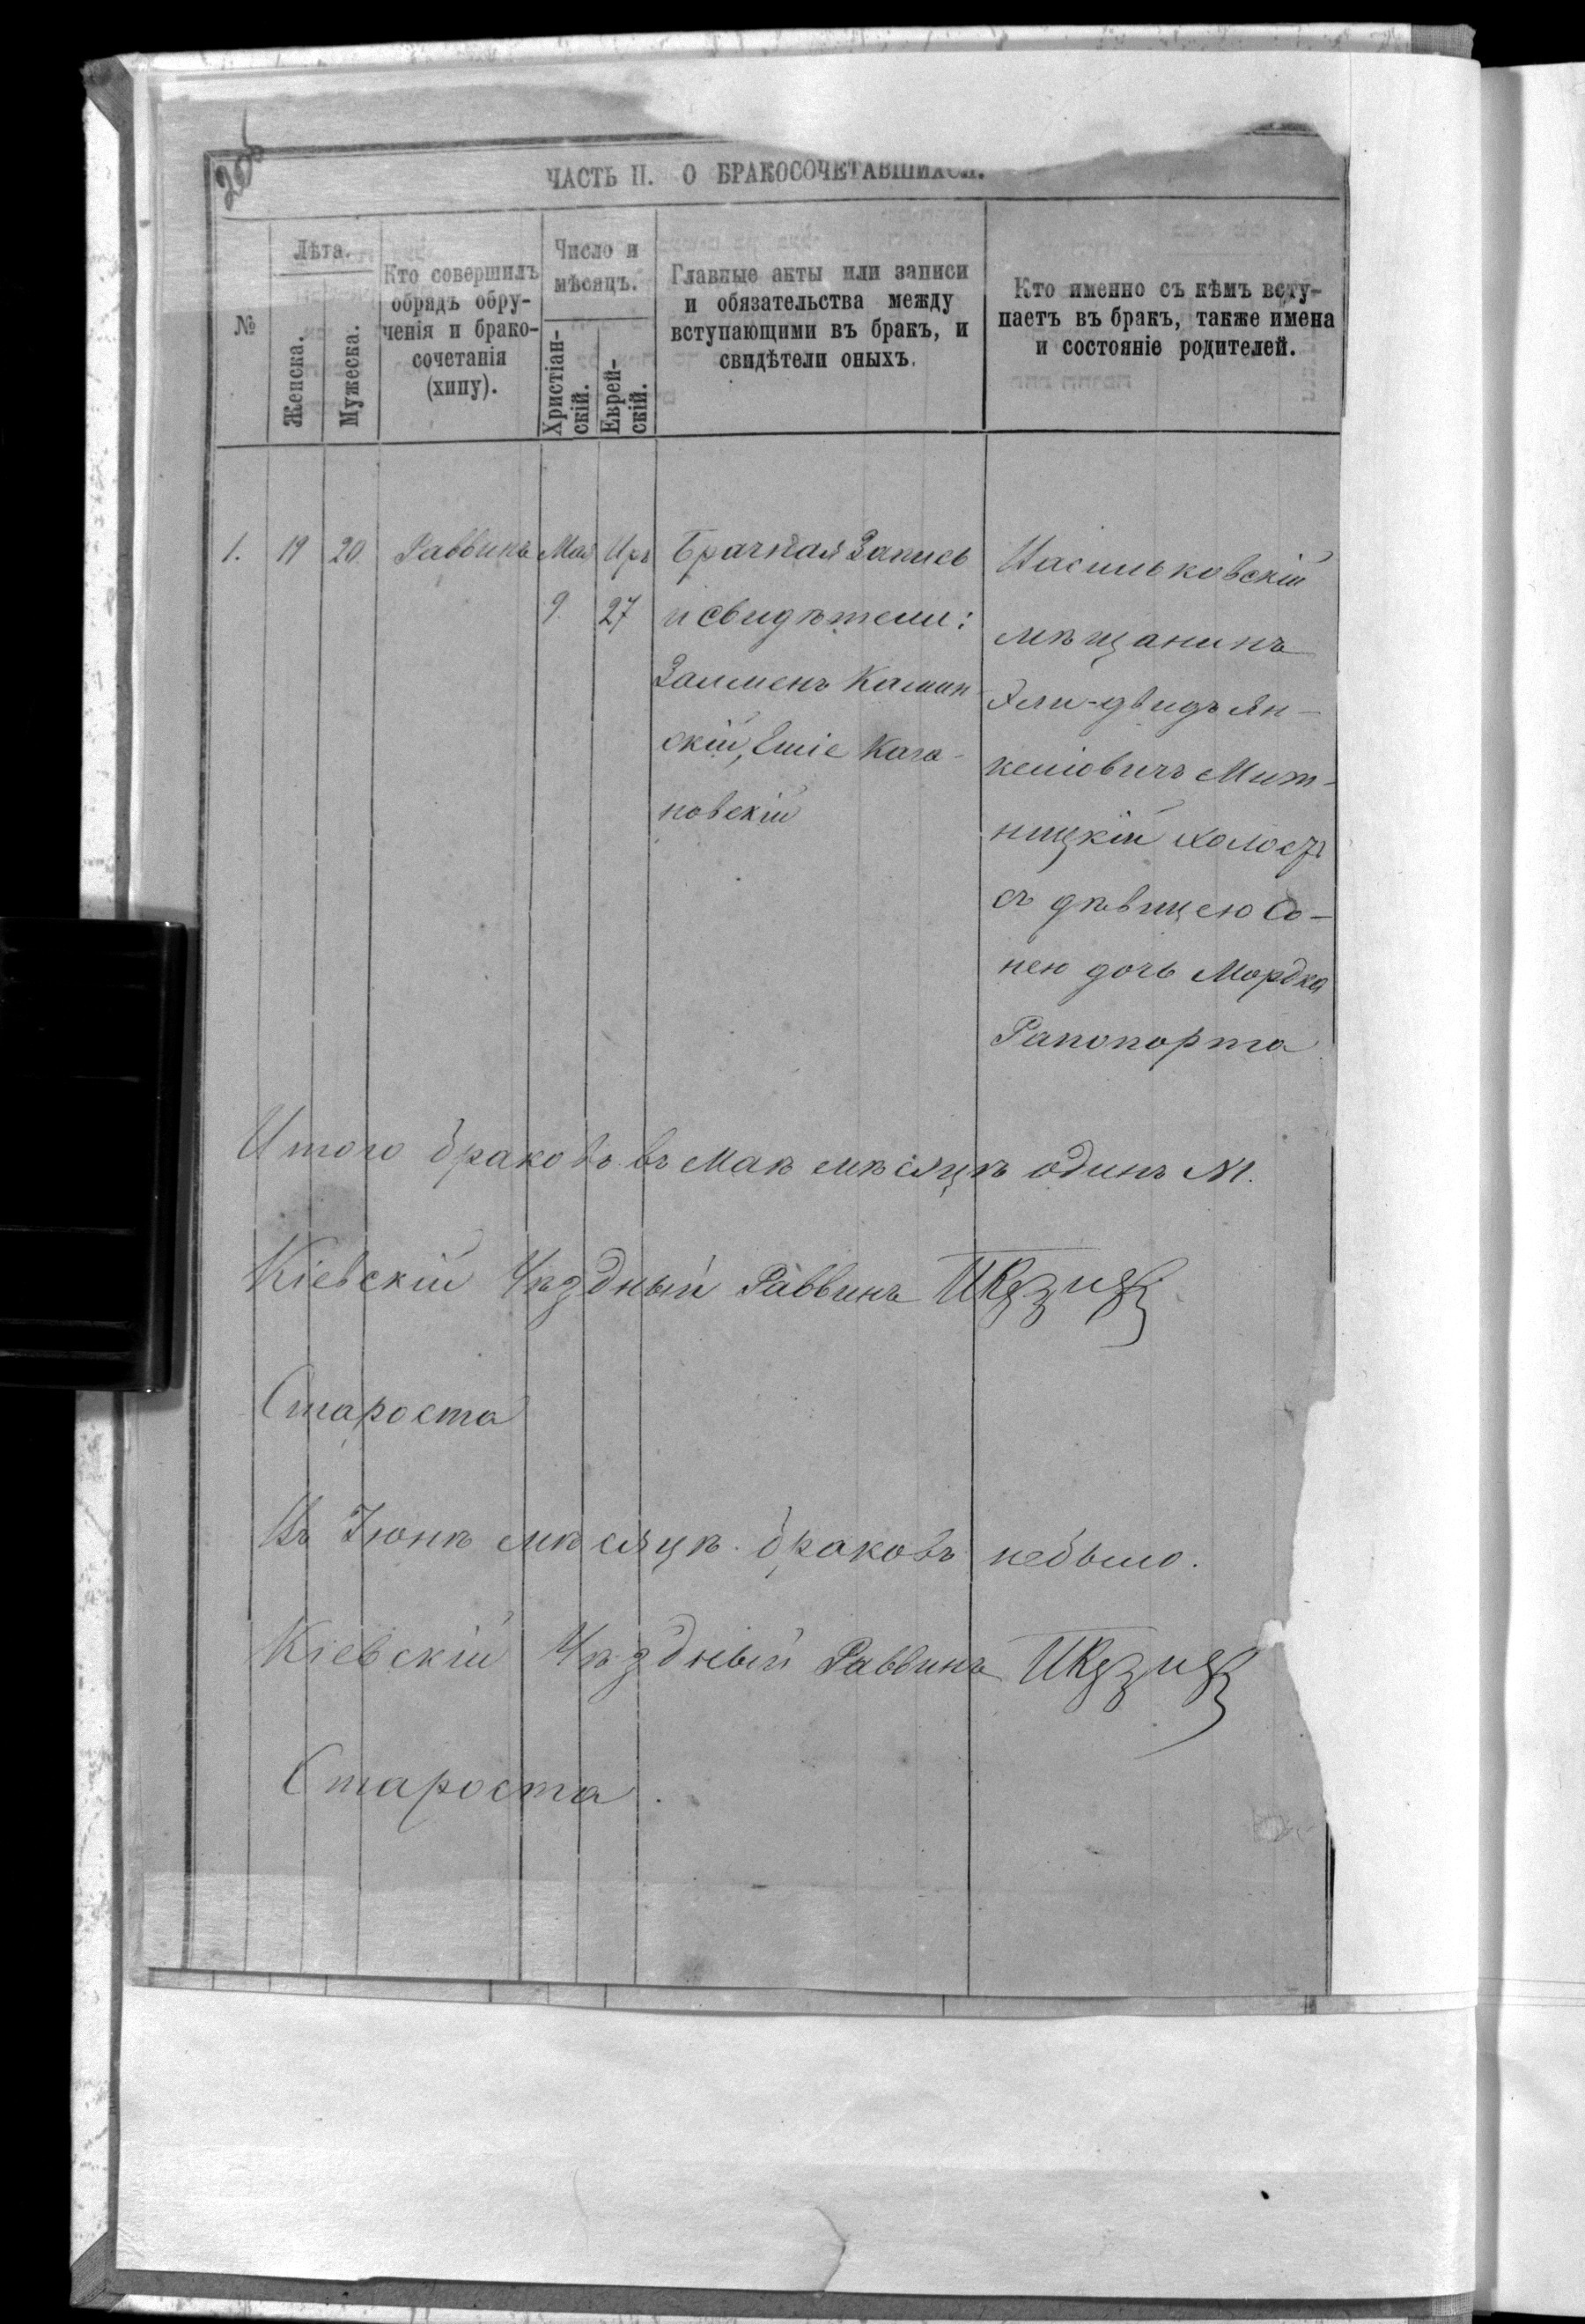 ЧАСТЬ II. О БРАКОСОЧЕТАВШИХСЯ.
№
Лѣта.
Женска.
Мужеска.
Кто совершилъ
обрядъ обру-
ченія и брако-
сочетанія
(хипу).
Число и
мѣсяцъ.
Христіан-
скій.
Еврей-
скій.
Главные акты или записи
и обязательства между
вступающими въ бракъ, и
свидѣтели оныхъ.
Кто именно съ кѣмъ всту-
паетъ въ бракъ, также имена
и состояніе родителей.
1. 19 20. Раввинъ Мая Иръ
9. 27
Брачная Запись
и свидѣтели:
Залменъ Камин
скій, Еліе Кага-
новскій
Васильковскій
мѣщанинъ
Эли-двидъ Ян-
келіовичъ Мит-
ницкій холостъ
съ дѣвицею Со-
нею дочь Мордка
Рапопорта
Итого браковъ въ Маѣ мѣсяцѣ одинъ №1.
Кіевскій Уѣздный Раввинъ
Староста
Въ Іюнѣ мѣсяцѣ браковъ небыло.
Кіевскій Уѣздный Раввинъ
Староста.